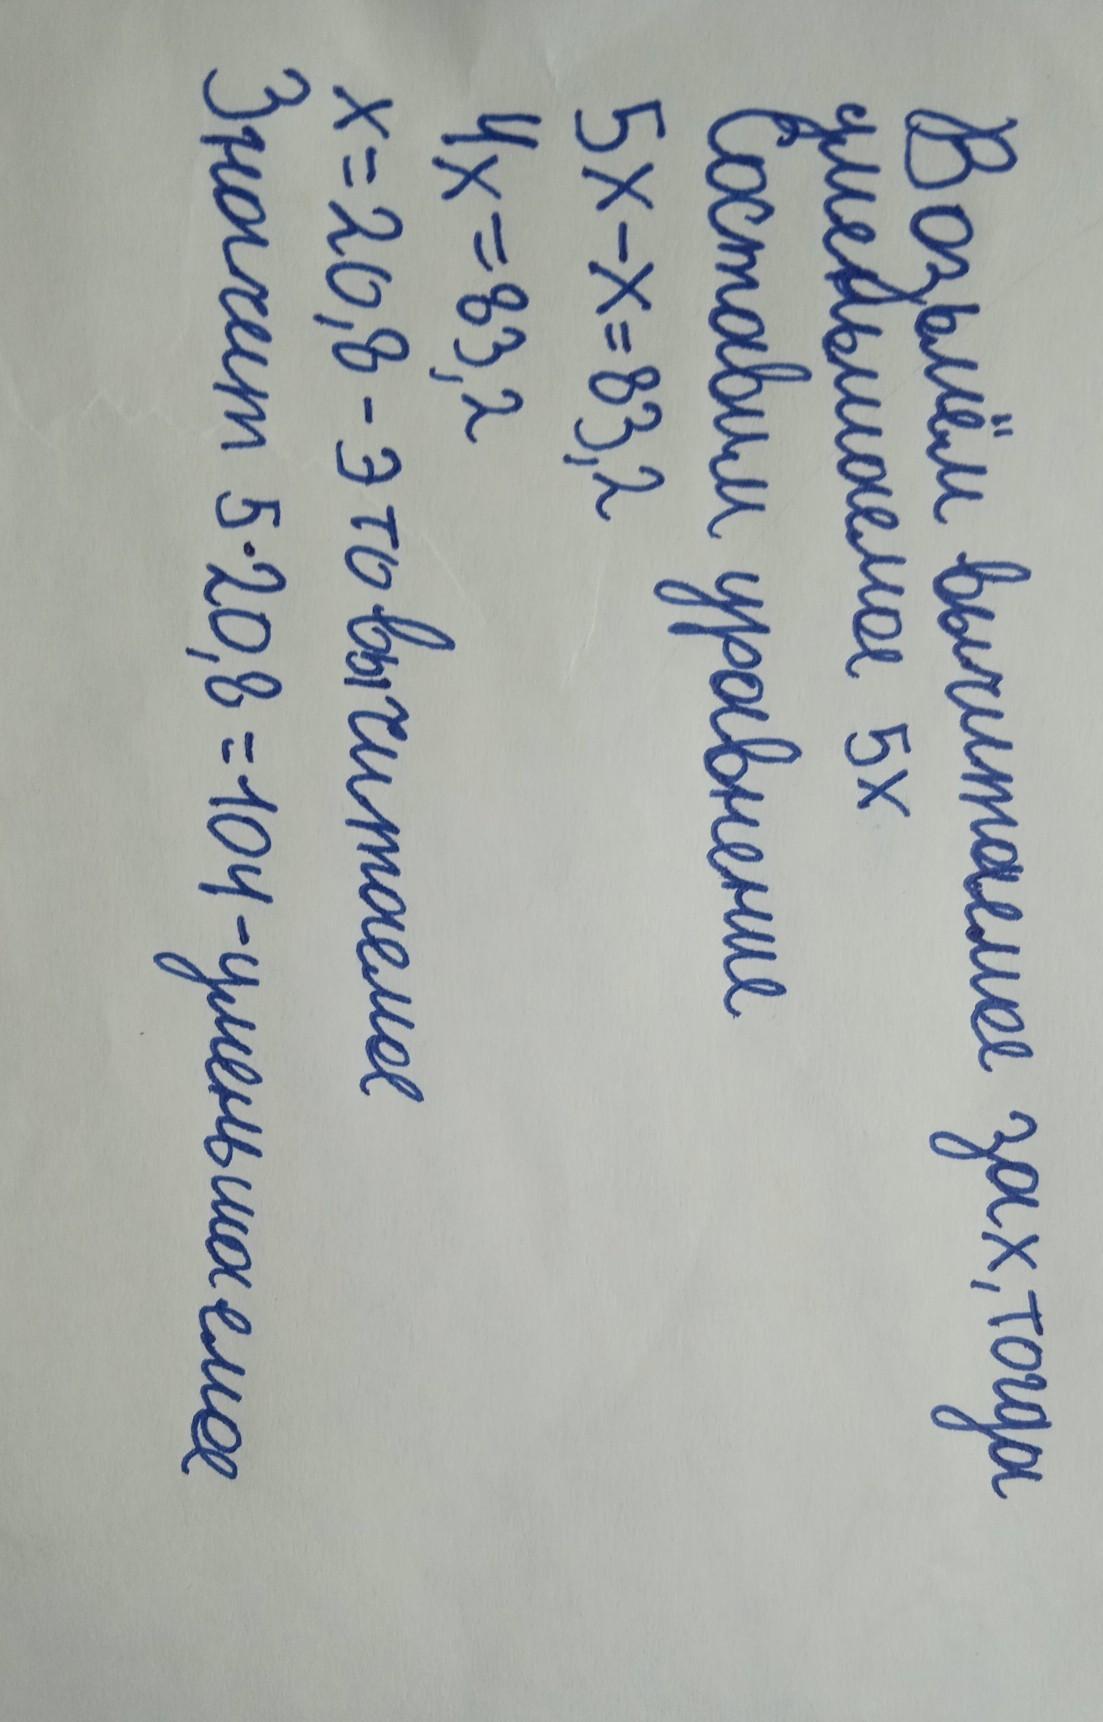 Возьмём вычитаемое за х, тогда
уменьшаемое 5х
Составим уравнение
5х-х=83,2
4х=83,2
х=20,8-это вычитаемое
Значит 5·20,8=104-уменьшаемое